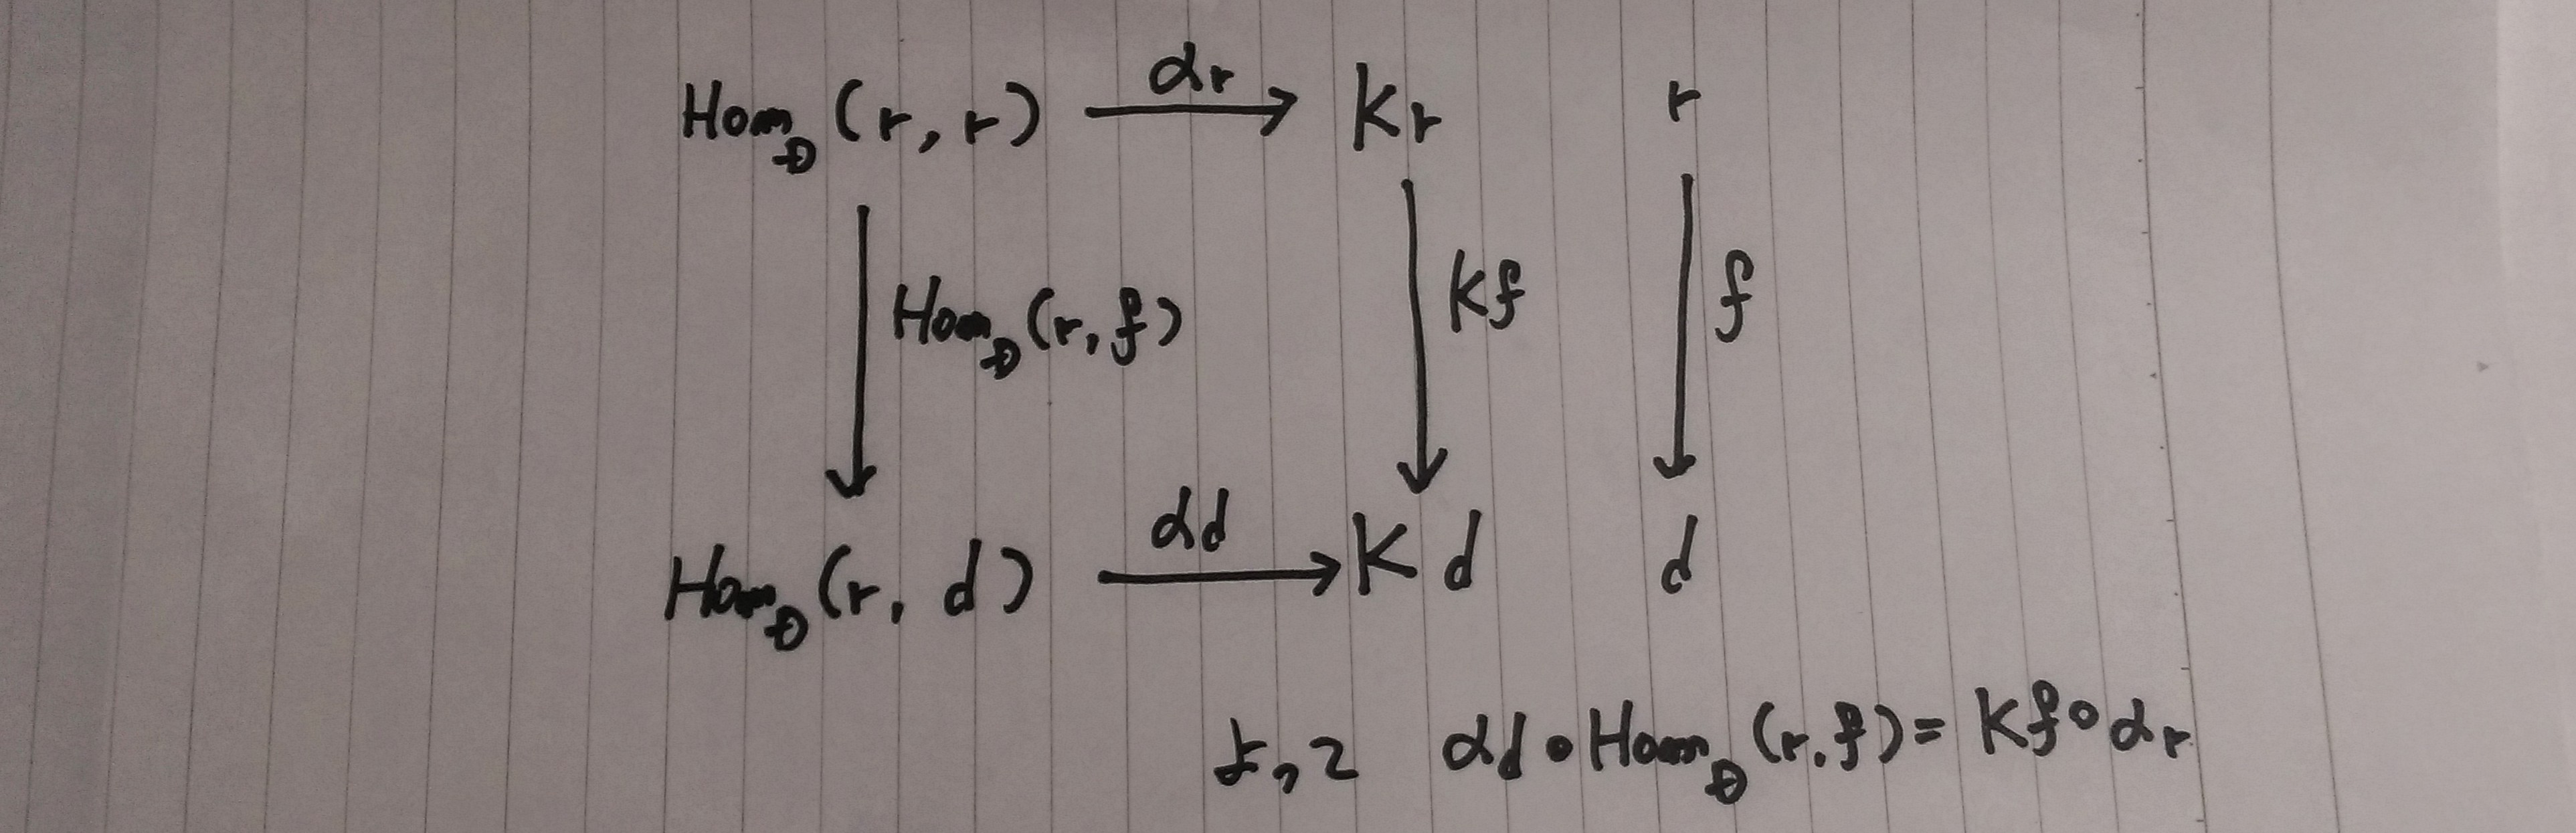 Hom_D(r, r) α_r K_r r
Hom_D(r, f) Kf f
Hom_D(r, d) α_d K d d
よって α_d ∘ Hom_D(r, f) = Kf ∘ α_r